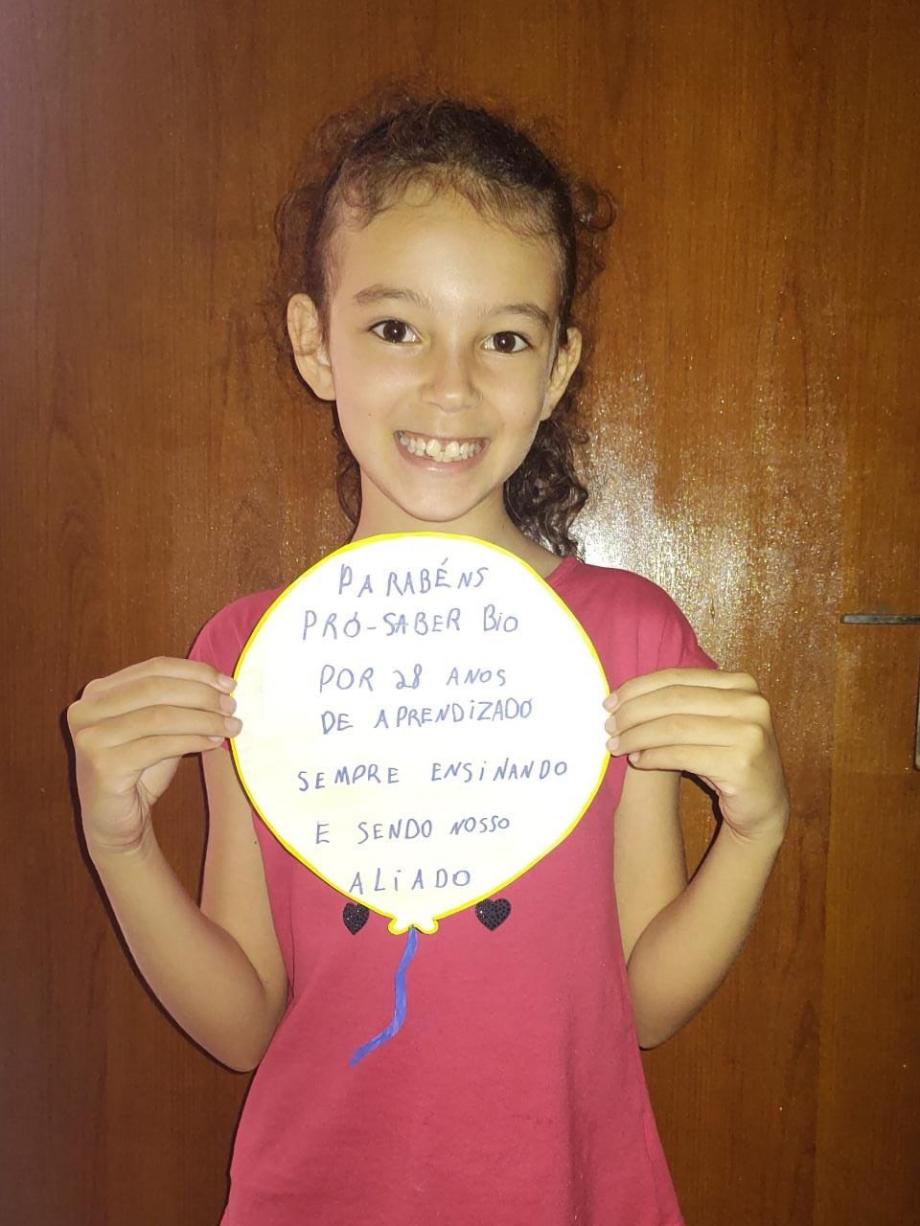 PARABÉNS
PRÓ-SABER BIO
POR 28 ANOS
DE APRENDIZADO
SEMPRE ENSINANDO
E SENDO NOSSO
ALIADO